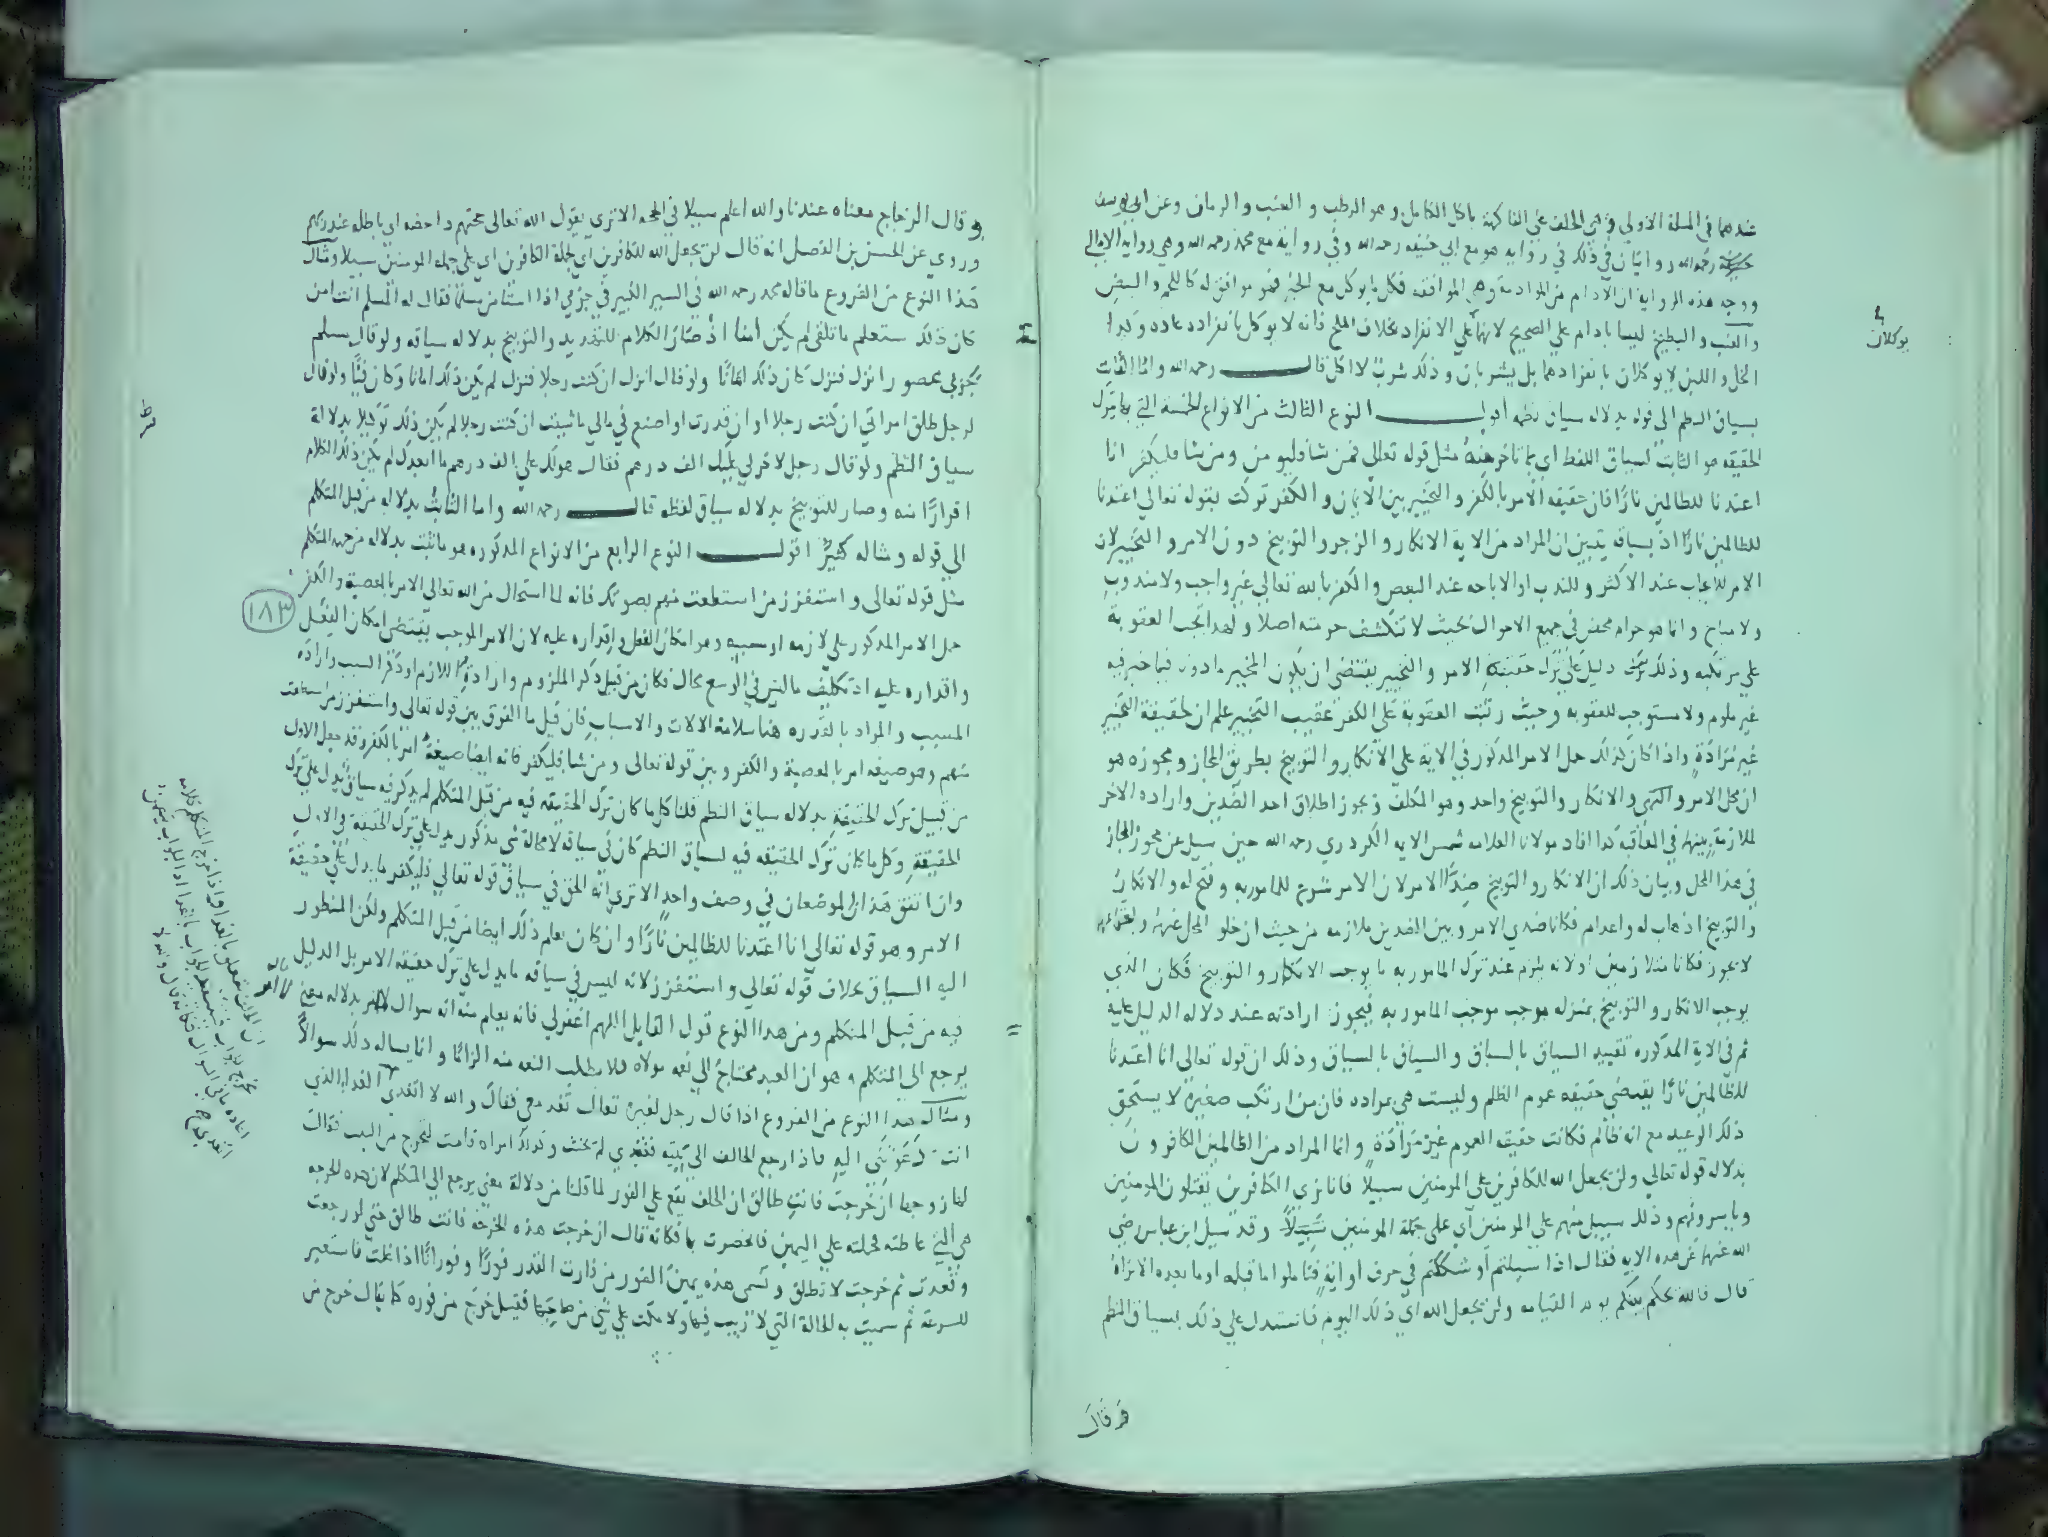 عندهما في المسلة الاولي وهي الحلف على الفاكهة ياكل الكامل وهو الرطب و العنب والرمان وعن ابي يوسف
رحمه الله روايتان في ذلك في روايه هو مع ابي حنيفه رحمه الله وفي رواية مع محمد رحمه الله وهي روايه الامالي
ووجه هذه الرواية ان الادام من الموادمة وهي الموافقه فكل ما يوكل مع الخبز فهو موافق له كاللحم والبيض
والعنب والبطيخ ليسا بادام علي الصحيح لانهما علي الانفراد بخلاف الملح فانه لا يوكل بانفراده عاده وكذا
الخل واللبن لا يوكلان بانفرادهما بل يشربان وذلك شرب لا اكل قال رحمه الله واما الثابت
بسياق النظم الى قوله بدلاله سياق نظمه اقول النوع الثالث من الانواع الخمسة التي بها تترك
الحقيقه هو الثابت لسياق اللفظ اي بما تاخر منه مثل قوله تعالي فمن شا فليومن ومن شا فليكفر انا
اعتدنا للظالمين نارا فان حقيقه الامر بالكفر والتخيير بين الايمان والكفر تركت بقوله تعالي اعتدنا
للظالمين نارا اذ بسياقه يتبين ان المراد من الاية الانكار والزجر والتوبيخ دون الامر والتخيير لان
الامر للايجاب عند الاكثر وللندب او الاباحه عند البعض والكفر بالله تعالي غير واجب ولا مندوب
ولا مباح وانما هو حرام محض في جميع الاحوال بحيث لا تنكشف حرمته اصلا ولهذا تجب العقوبة
علي مرتكبه وذلك دليل علي ترك حقيقة الامر والتخيير يقتضي ان يكون المخير ماذونا فيما خير فيه
غير ملوم ولا مستوجب للعقوبه وحيث رتبت العقوبة علي الكفر عقيب التخيير علم ان حقيقة التخيير
غير مرادة واذا كان كذلك حمل الامر المذكور في الاية على الانكار والتوبيخ بطريق المجاز ومجوزه هو
ان محل الامر والنهي والانكار والتوبيخ واحد وهو المكلف ويجوز اطلاق احد الضدين واراده الاخر
لملازمة بينهما في المعاقبة كذا افاد مولانا العلامه شمس الايمه الكردري رحمه الله حين سيل عن مجوز المجاز
في هذا المحل وبيان ذلك ان الانكار والتوبيخ ضد الامر لان الامر شرع للماموربه وفتح له والانكار
والتوبيخ اذهاب له واعدام فكانا ضدي الامر وبين الضدين ملازمه من حيث ان خلو المحل عنهما
لا يجوز فكانا متلازمين اولانه يلزم عند ترك المامور به ما يوجب الانكار والتوبيخ فكان الذي
يوجب الانكار والتوبيخ بمنزله موجب موجب المامور به فيجوز ارادته عند دلاله الدليل عليه
ثم في الاية المذكوره تقييد السياق بالسباق والسباق بالسياق وذلك ان قوله تعالى انا اعتدنا
للظالمين نارا يقتضي حقيقه عموم الظلم وليست هي بمراده فان من ارتكب صغيرة لا يستحق
ذلك الوعيد مع انه ظالم فكانت حقيقه العموم غير مرادة وانما المراد من الظالمين الكافرون
بدلاله قوله تعالي ولن يجعل الله للكافرين على المومنين سبيلا فانا نري الكافرين يقتلون المومنين
وياسرونهم وذلك سبيل منهم علي المومنين اي علي جملة المومنين سبيلا وقد سيل ابن عباس رضي
الله عنهما عن هذه الايه فقال اذا سيلتم او شككتم في حرف او اية فتاملوا ما قبلها او ما بعده الا تراه
قال فالله يحكم بينكم يوم القيامه ولن يجعل الله اي ذلك اليوم فاستدل علي ذلك بسياق النظم
يوكلان
وقال الزجاج معناه عندنا والله اعلم سبيلا في الحجه الا تري يقول الله تعالى حجتهم داحضه اي باطله عند ربهم
وروي عن الحسن بن الفضل انه قال لن يجعل الله للكافرين اي لجملة الكافرين اي على جمله المومنين سبيلا ومثال
هذا النوع من الفروع ما قاله محمد رحمه الله في السير الكبير في حربي اذا استامن مسلما فقال له المسلم انت امن
كان ذلك ستعلم ما تلقي لم يكن امنا اذ صار الكلام للتهديد والتوبيخ بدلاله سياقه ولو قال مسلم
لحربي محصور انزل فنزل كان ذلك امانا ولو قال انزل ان كنت رجلا فنزل لم يكن ذلك امانا وكان فيئا ولو قال
لرجل طلق امراتي ان كنت رجلا او ان قدرت او اصنع في مالي ما شيت ان كنت رجلا لم يكن ذلك توكيلا بدلالة
سياق النظم ولو قال رجل لاخر لي عليك الف درهم فقال هو لك علي الف درهم ما ابعدك لم يكن ذلك الكلام
اقرارا منه وصار للتوبيخ بدلاله سياق لفظه قال رحمه الله واما الثابت بدلاله من قبل المتكلم
الي قوله ومثاله كثير اقول النوع الرابع من الانواع المذكوره هو ما ثبت بدلاله من جهه المتكلم
مثل قوله تعالى واستفزز من استطعت منهم بصوتك فانه لما استحال من الله تعالى الامر بالمعصية والكفر
حمل الامر المذكور علي لازمه او مسببه وهو امكان الفعل واقداره عليه لان الامر الموجب يقتضى امكان الفعل
واقداره عليه اذ تكليف ما ليس في الوسع محال فكان من قبيل ذكر الملزوم وارادة اللازم او ذكر السبب وارادة
المسبب والمراد بالقدره هنا سلامة الالات والاسباب فان قيل ما الفرق بين قوله تعالى واستفزز من استطعت
منهم وهو صيغه امر بالمعصية والكفر وبين قوله تعالى ومن شا فليكفر فانه ايضا صيغة امر بالكفر وقد جعل الاول
من قبيل ترك الحقيقة بدلاله سياق النظم قلنا كل ما كان ترك الحقيقه فيه من قبل المتكلم لم يذكر فيه سياق يدل علي ترك
الحقيقة وكل ما كان ترك الحقيقه فيه لسياق النظم كان في سياقه لا محالة شي مذكور يدل علي ترك الحقيقة والاول
وان اتفق هذان الموضعان في وصف واحد الا تري انه الحق في سياق قوله تعالي فليكفر ما يدل علي حقيقة
الامر وهو قوله تعالي انا اعتدنا للظالمين نارا وان كان يعلم ذلك ايضا من قبل المتكلم ولكن المنظور
اليه السياق بخلاف قوله تعالي واستفزز لانه ليس في سياقه ما يدل علي ترك حقيقه الامر بل الدليل
فيه من قبل المتكلم ومن هذا النوع قول القايل اللهم اغفرلي فانه يعلم منه انه سوال لا امر بدلاله معني
يرجع الى المتكلم وهو ان العبد محتاج الي نعه مولاه فلا يطلب النعه منه الزاما وانما يساله ذلك سوالا
ومثال هذا النوع من الفروع اذا قال رجل لغيره تعال تغد معي فقال والله لا اتغدي الغدا الذي
انت دعوتني اليه فاذا رجع الحالف الي بيته فتغدي لم يحنث وكذلك امراه قامت لتخرج من البيت فقال
لها زوجها ان خرجت فانت طالق ان الحلف يقع علي الفور لما قلنا من دلالة معني يرجع الي المتكلم لان هذه الخرجه
هي التي عاظته فحملته علي اليمين فانحصرت بها فكانه قال ان خرجت هذه الخرجه فانت طالق حتي لو رجعت
وقعدت ثم خرجت لا تطلق وتسمى هذه يمين الفور من فارت القدر فورا وفورانا اذا غلت فاستعير
للسرعة ثم سميت به الحالة التي لا ريب فيها ولا مكث علي شي من صاحبها فقيل خرج من فوره كما يقال خرج من
١٨٣